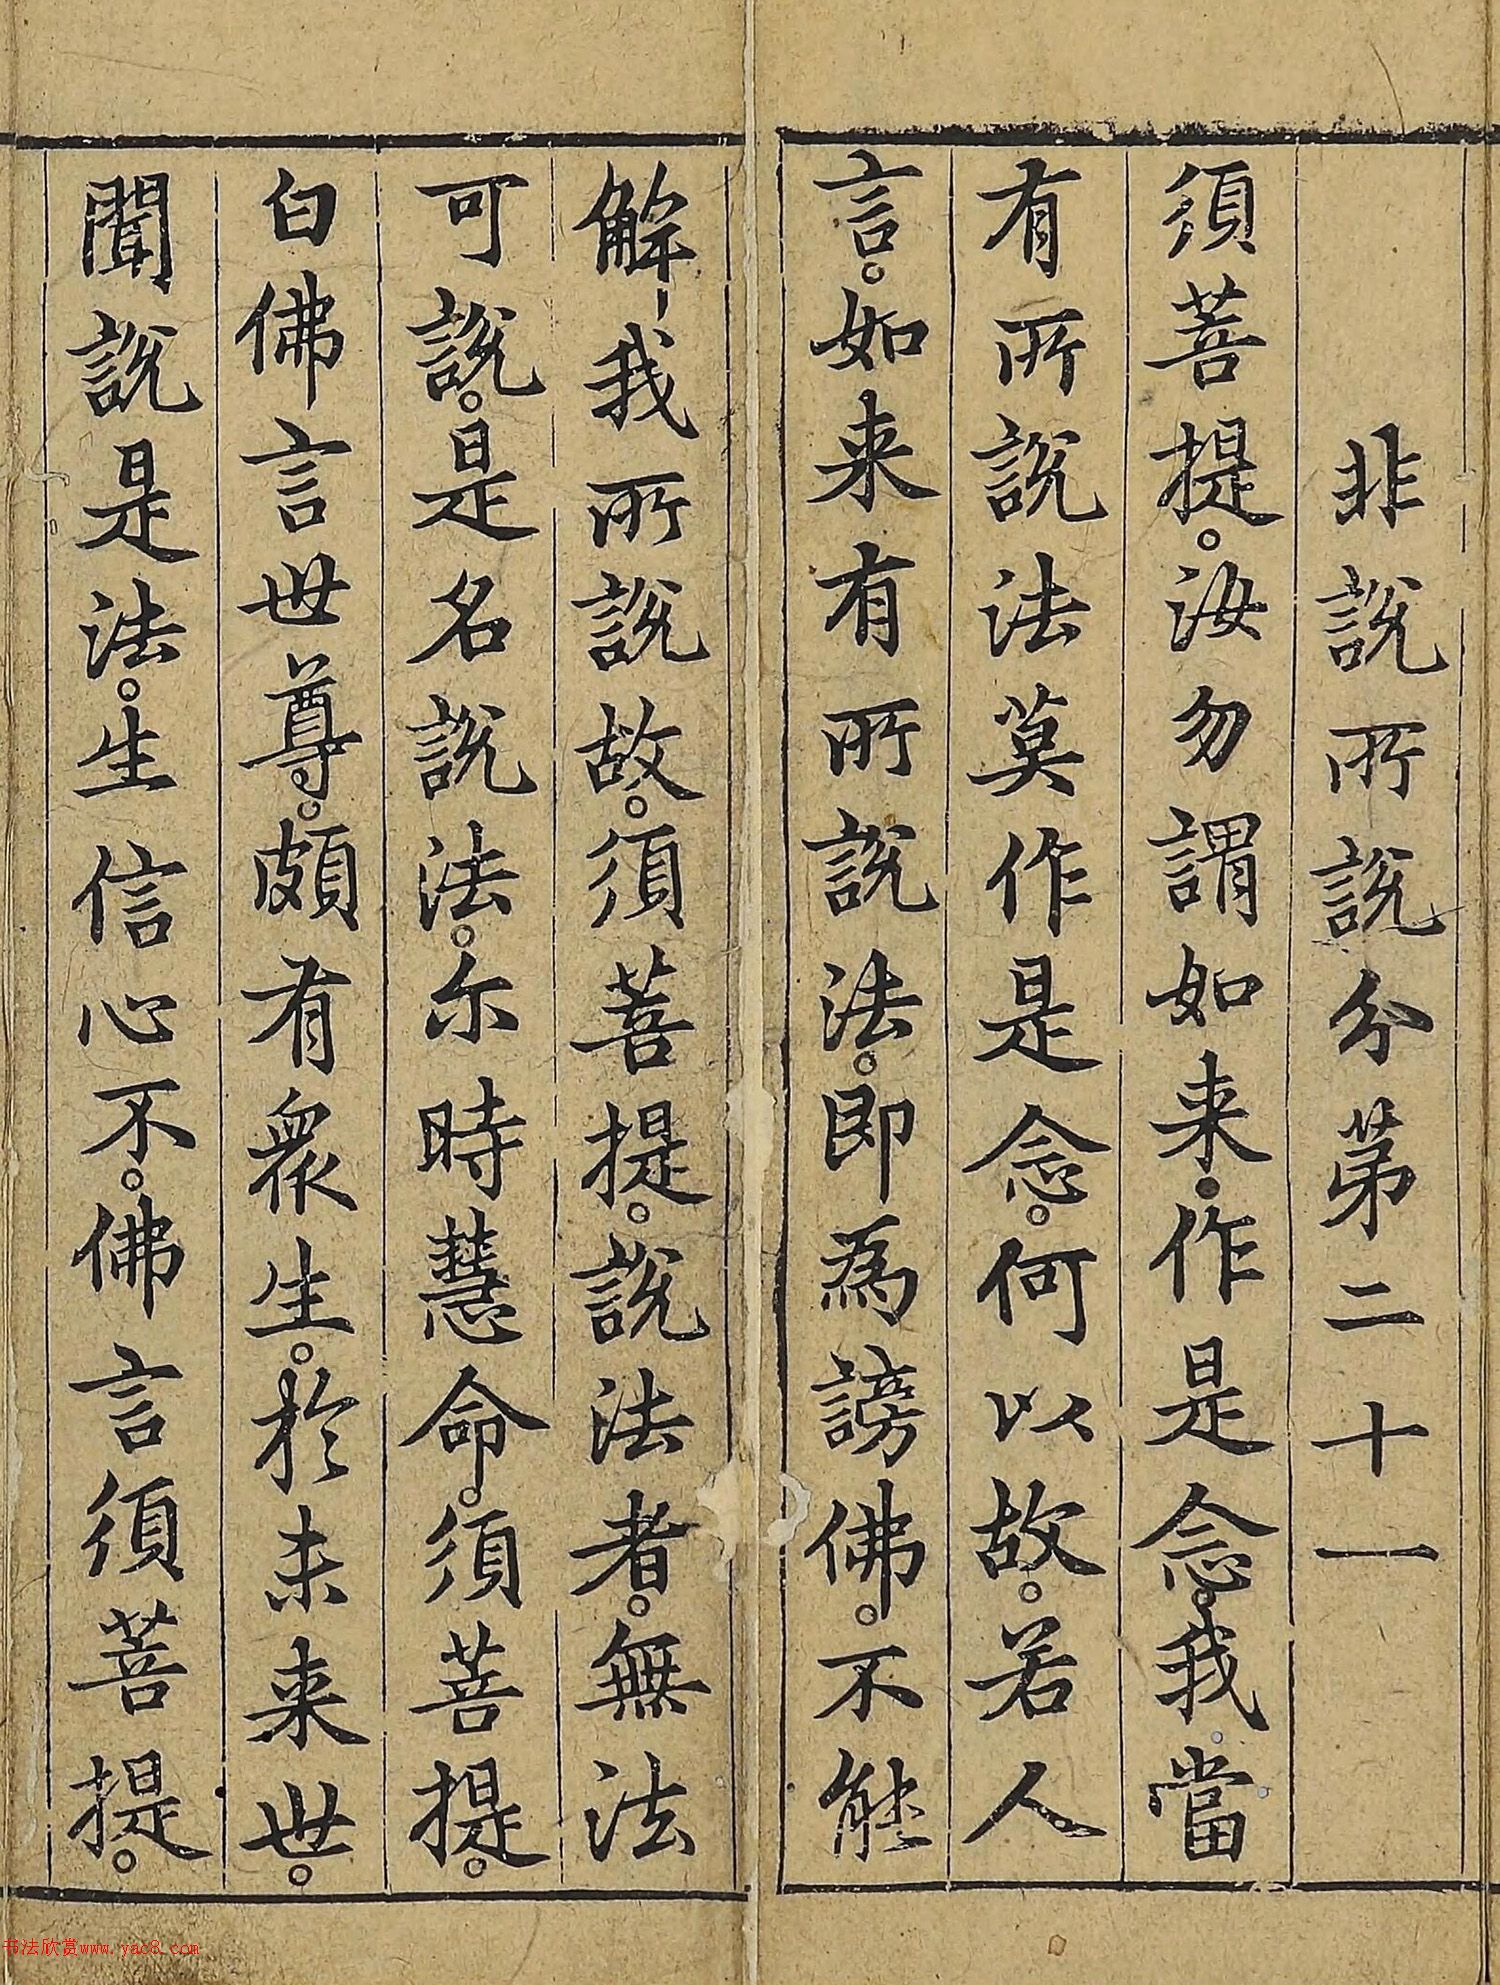 非說所說分第二十一
須菩提。汝勿謂如来。作是念。我當
有所說法莫作是念。何以故。若人
言。如来有所說法。即為謗佛。不能
解我所說故。須菩提。說法者。無法
可說。是名說法。尒時慧命。須菩提。
白佛言世尊。頗有衆生。於未来世。
聞說是法。生信心不。佛言須菩提。
书法欣赏www.yac8.com